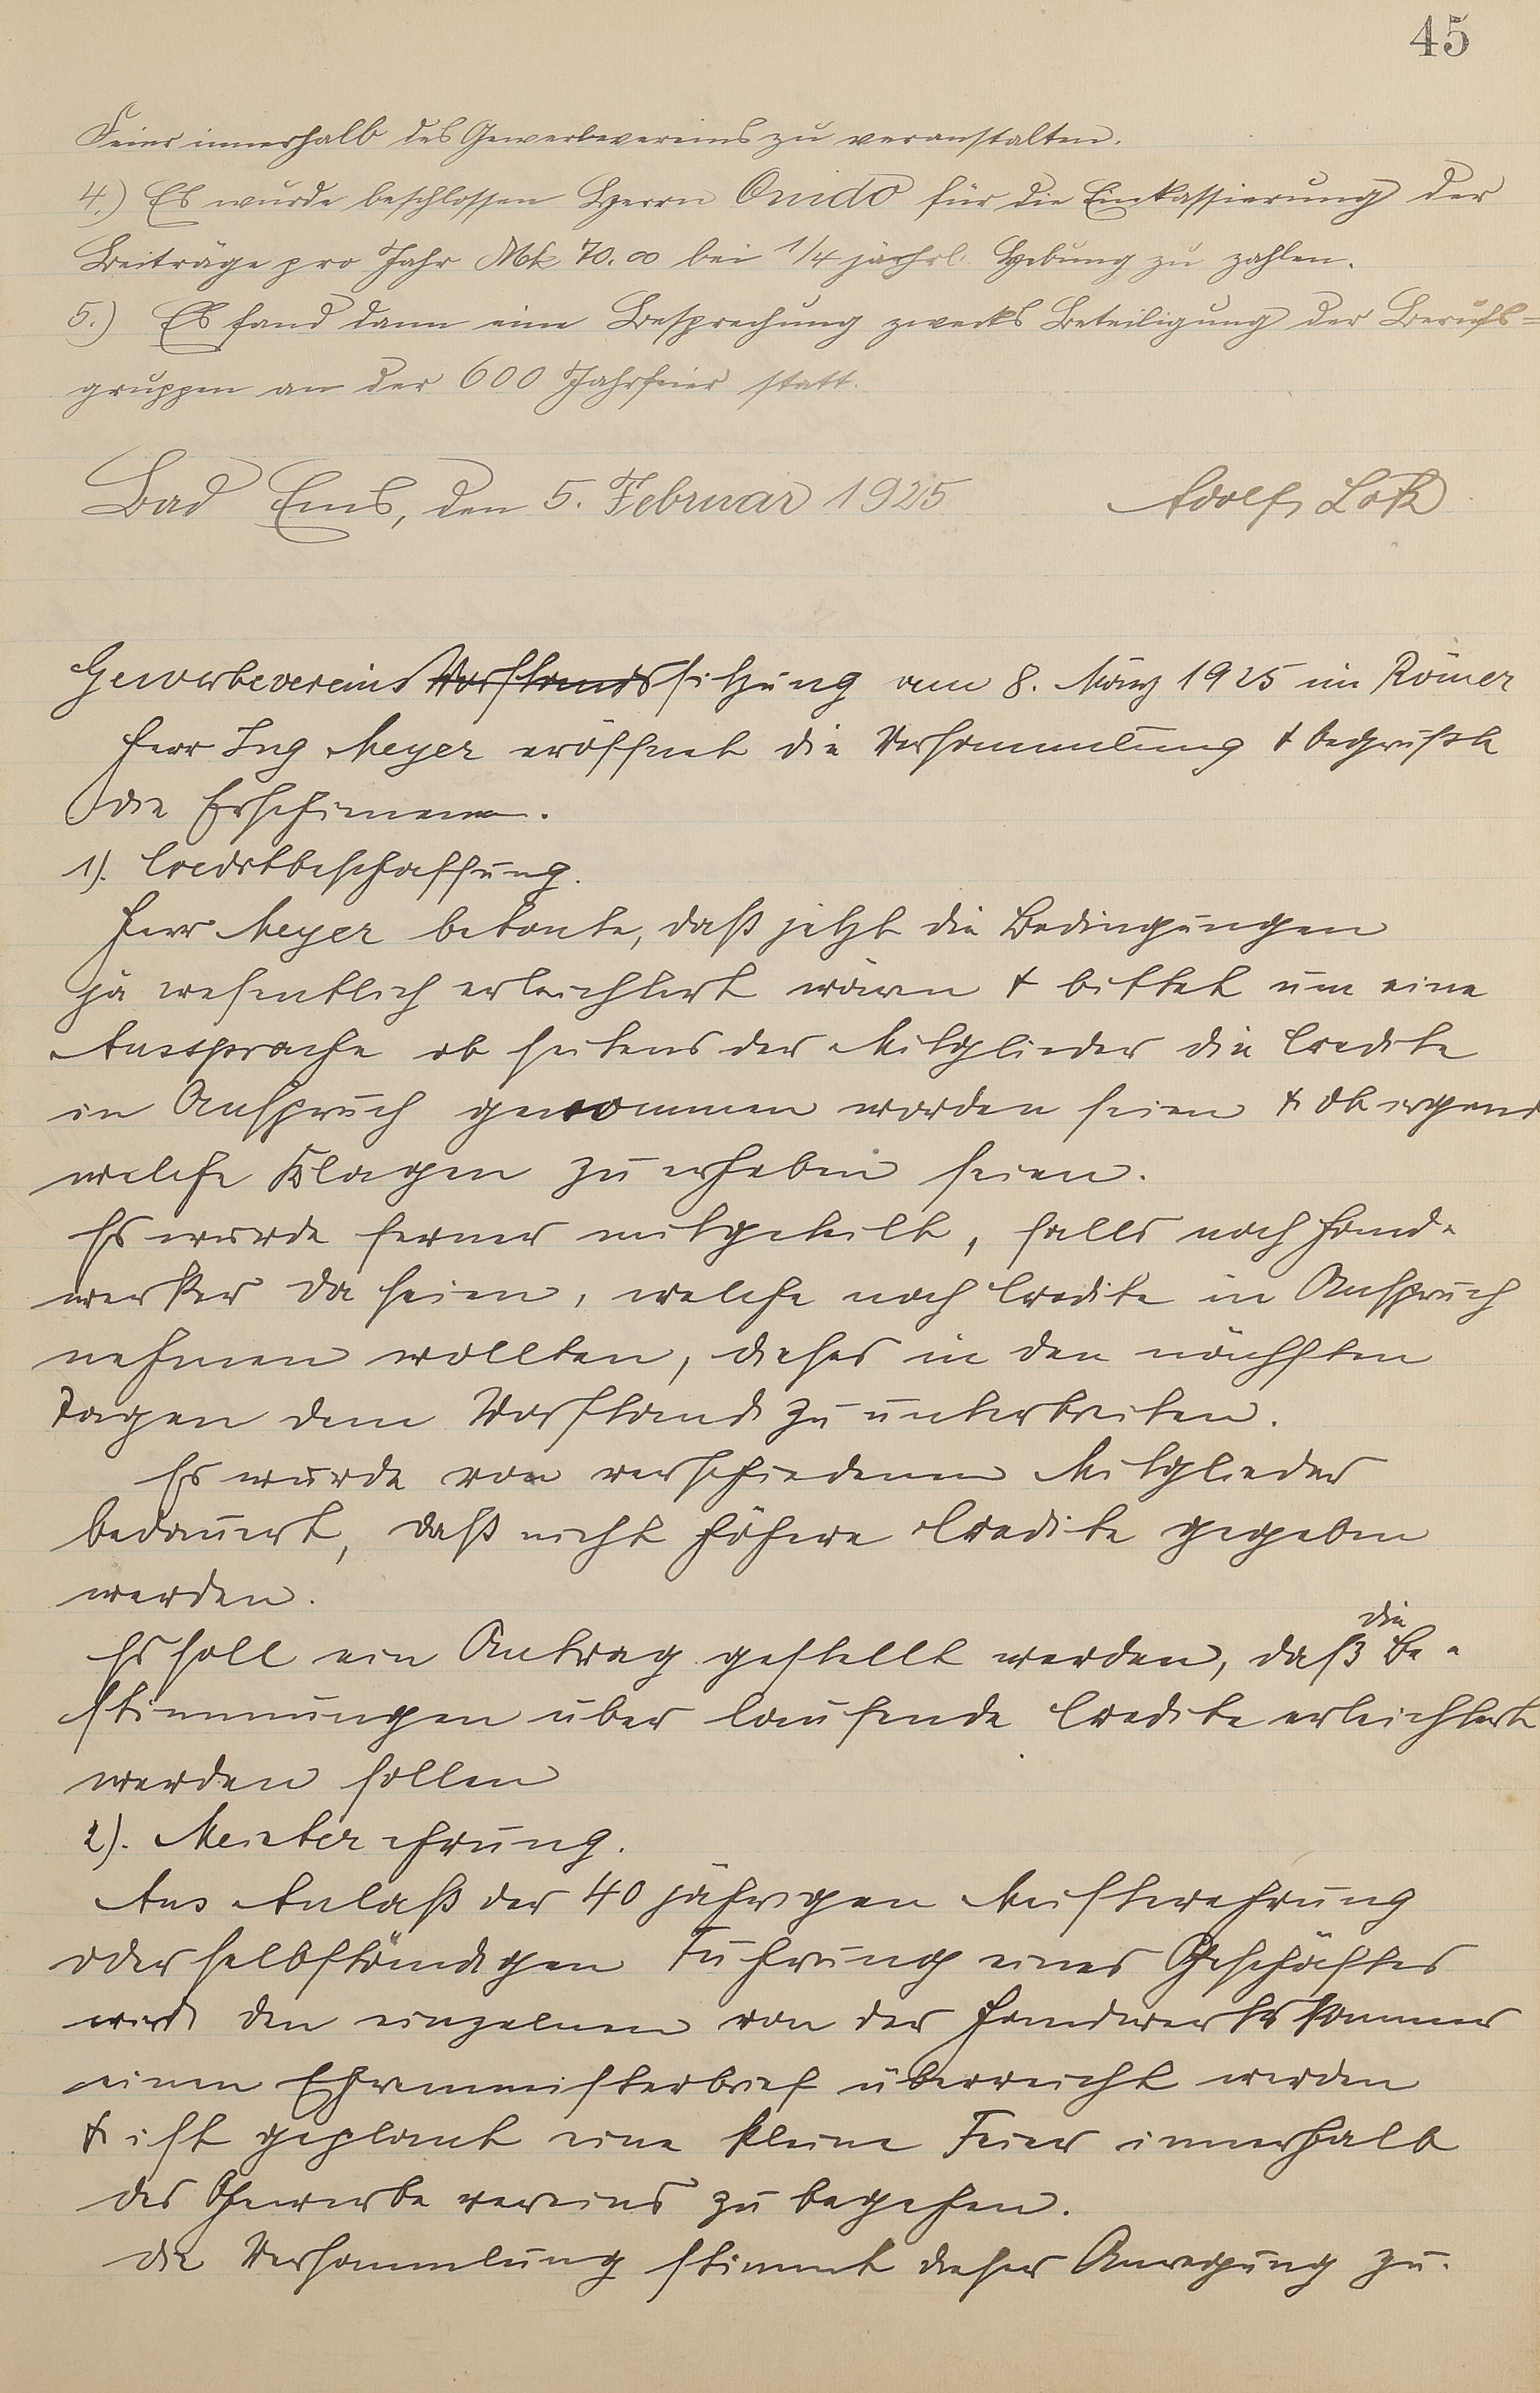 45
Feier innerhalb des Gewerbevereins zu veranstalten.
4.) Es wurde beschlossen Herrn Onido für die Einkassierung der
Beiträge pro Jahr Mk 70.00 bei 1/4 jährl. Hebung zu zahlen.
5.) Es fand dann eine Besprechung zwecks Beteiligung der Berufs=
gruppen an der 600 Jahrfeier statt.
Bad Ems, den 5. Februar 1925 Adolf
Gewerbevereins Vorstandssitzung am 8. März 1925 im Römer
Herr Ing Meyer eröffnet die Versammlung & begrüßte
die Erschienenen.
1). Creditbeschaffung.
Herr Meyer betonte, daß jetzt die Bedingungen
ja wesentlich erleichtert wären & bittet um eine
Aussprache ob seitens der Mitglieder die Credite
in Anspruch genommen worden seien & ob irgend
welche Klagen zu erheben seien.
Es wurde ferner mitgeteilt, falls noch Hand-
werker da seien, welche noch Credite in Anspruch
nehmen wollten, dieses in den nächsten
Tagen dem Vorstand zu unterbreiten.
Es wurde von verschiedenen Mitglieder
bedauert, daß nicht höhere Credite gegeben
werden.
Es soll ein Antrag gestellt werden, daß die Be-
stimmungen über laufende Credite erleichtert
werden sollen
2). Meisterehrung.
Aus Anlaß der 40 jährigen Meisterehrung
oder selbständigen Führung eines Geschäftes
wird den einzelnen von der Handwerkskammer
einen Ehrenmeisterbrief überreicht werden
& ist geplant eine kleine Feier innerhalb
des Gewerbevereins zu begehen.
Die Versammlung stimmt dieser Anregung zu.